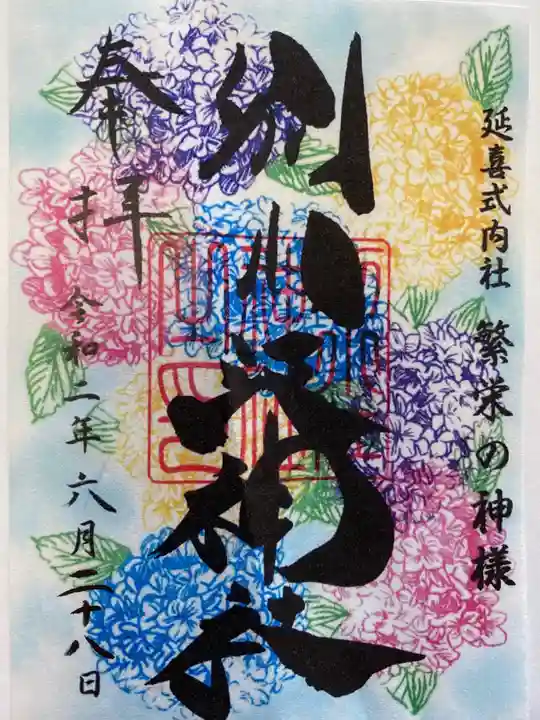 延喜式内社 繁栄の神様
別小江神社
奉拝
令和二年六月二十八日